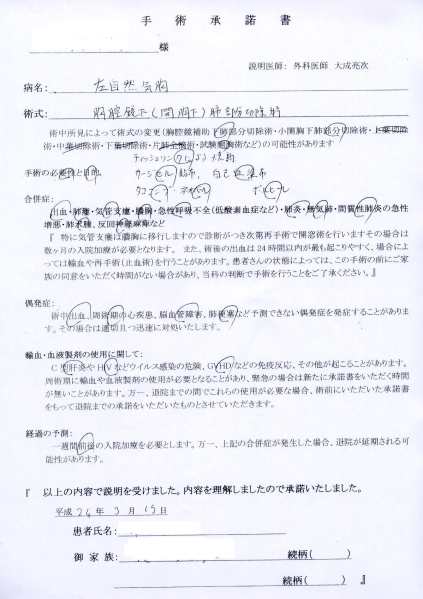 手術承諾書
様
説明医師: 外科医師 大成亮次
病名: 左自然気胸
術式: 胸腔鏡下(開胸下)肺部分切除術
術中所見によって術式の変更(胸腔鏡補助下肺部分切除術・小開胸下肺部分切除術・上葉切除
術・中葉切除術・下葉切除術・片肺全摘術・試験開胸術など)の可能性があります
手術の必要性と目的
合併症:
出血・肺瘻・気管支瘻・膿胸・急性呼吸不全(低酸素血症など)・肺炎・無気肺・間質性肺炎の急性
増悪・肺水腫、反回神経麻痺など
『 特に気管支瘻は膿胸に移行しますので診断がつき次第再手術で開窓術を行いますその場合は
数ヶ月の入院加療が必要となります。また、術後の出血は24時間以内が最も起こりやすく、場合によ
っては輸血や再手術(止血術)を行うことがあります。患者さんの状態によっては、この手術の前にご家
族の同意をいただく時間がない場合があり、当科の判断で手術を行うことをご了承ください。』
偶発症:
術中出血、周術期の心疾患、脳血管障害、肺梗塞など予測できない偶発症を発症することがありま
す。その場合は適切且つ迅速に対処いたします。
輸血・血液製剤の使用に関して:
C型肝炎やHIVなどウイルス感染の危険、GVHDなどの免疫反応、その他が起こることがあります。
周術期に輸血や血液製剤の使用が必要となることがあり、緊急の場合は新たに承諾書をいただく時間
が無いことがあります。万一、退院までの間でこれらの使用が必要な場合、術前にいただいた承諾書
をもって退院までの承諾をいただいたものとさせていただきます。
経過の予測:
一週間前後の入院加療を必要とします。万一、上記の合併症が発生した場合、退院が延期される可
能性があります。
『 以上の内容で説明を受けました。内容を理解しましたので承諾いたしました。
平成24年3月15日
患者氏名:
御家族: 続柄( )
続柄( ) 』